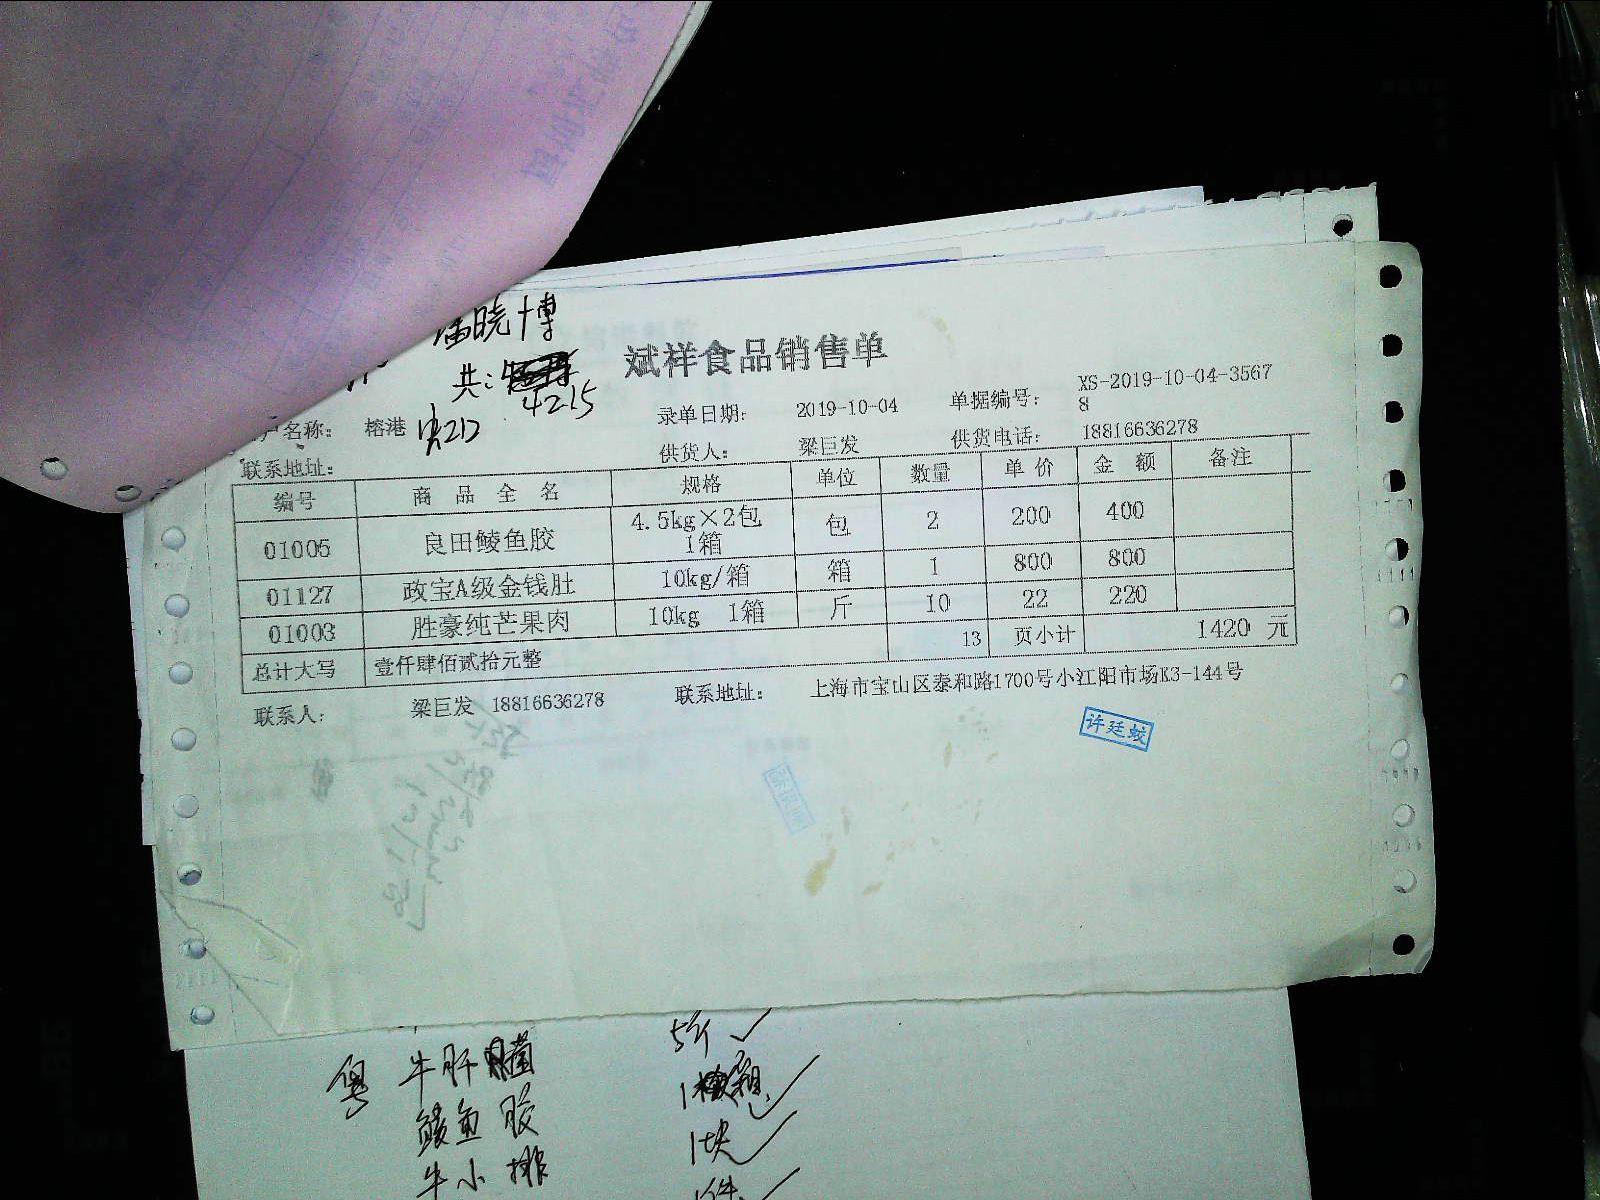 晓博
共：
4215
斌祥食品销售单
户名称： 榕港 录单日期： 2019-10-04 单据编号： XS-2019-10-04-3567
8
联系地址： 供货人： 梁巨发 供货电话： 18816636278
编号 商 品 全 名 规格 单位 数量 单 价 金 额 备注
01005 良田鲮鱼胶 4.5kg×2包 包 2 200 400
1箱
01127 政宝A级金钱肚 10kg/箱 箱 1 800 800
01003 胜豪纯芒果肉 10kg 1箱 斤 10 22 220
总计大写 壹仟肆佰贰拾元整 13 页小计 1420 元
联系人： 梁巨发 18816636278 联系地址： 上海市宝山区泰和路1700号小江阳市场K3-144号
许廷蛟
粤 牛肝菌 5斤
鲮鱼胶 1箱
牛小排 1块